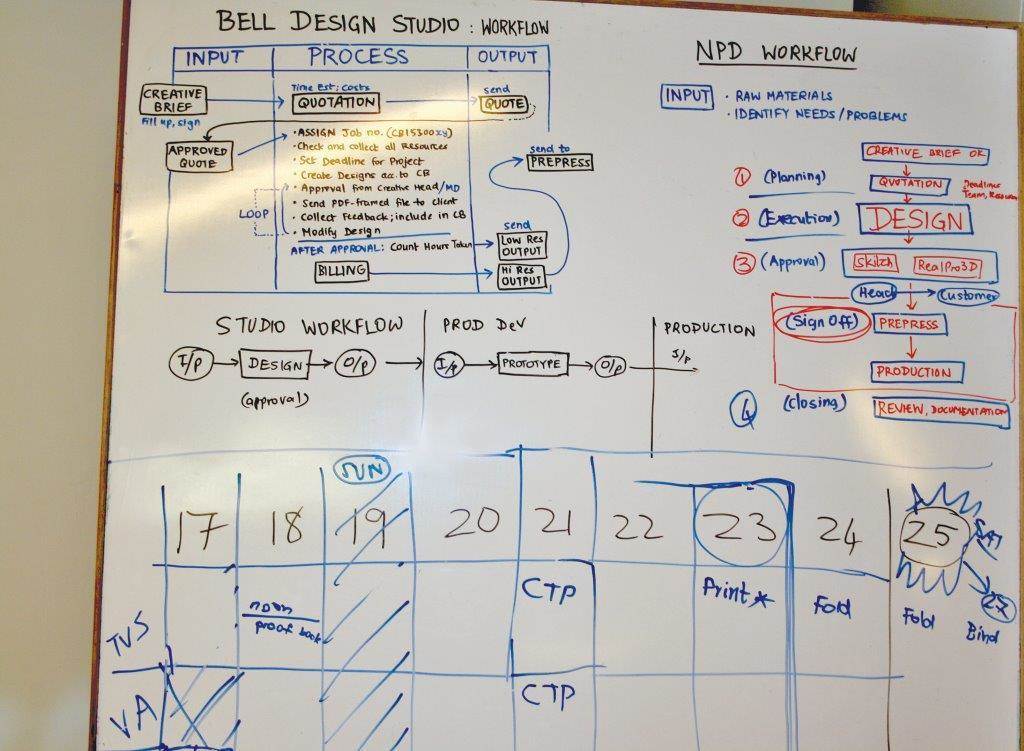 BELL DESIGN STUDIO : WORKFLOW
INPUT PROCESS OUTPUT
CREATIVE BRIEF
Fill up, sign
Time Est; costs
QUOTATION
send
QUOTE
APPROVED QUOTE
• ASSIGN Job no. (CB15300xy)
• Check and collect all Resources
• Set Deadline for Project
• Create Designs acc. to CB
• Approval from Creative Head/MD
• Send PDF-framed file to client
• Collect Feedback; include in CB
• Modify Design
LOOP
AFTER APPROVAL: Count Hours Taken
BILLING
send to
PREPRESS
send
Low Res OUTPUT
Hi Res OUTPUT
NPD WORKFLOW
INPUT
• RAW MATERIALS
• IDENTIFY NEEDS/PROBLEMS
CREATIVE BRIEF OK
1 (Planning)
QUOTATION
Deadlines
Team,
2 (Execution)
DESIGN
3 (Approval)
Skitch RealPro3D
Head Customer
(Sign Off) PREPRESS
PRODUCTION
4 (Closing)
REVIEW, DOCUMENTATION
STUDIO WORKFLOW PROD DEV PRODUCTION
I/p DESIGN O/p I/p PROTOTYPE O/p I/p
(approval)
SUN
17 18 19 20 21 22 23 24 25 SAT
TVS
noon
proof back
CTP
Print*
Fold
Fold
27
Bind
VA
CTP